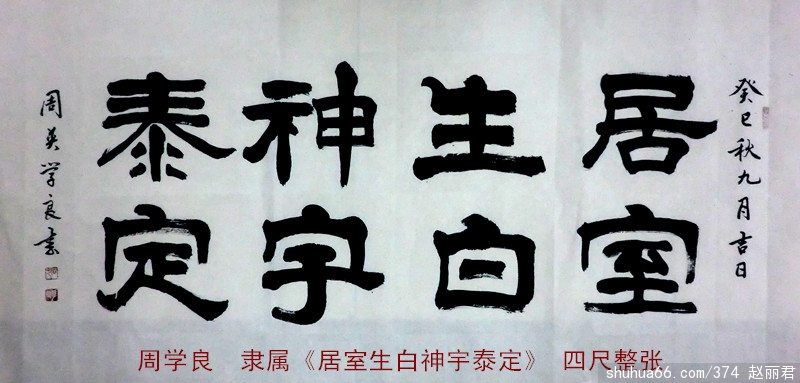 癸巳秋九月吉日
居室
生白
神宇
泰定
周英学良書
周学良 隶属《居室生白神宇泰定》 四尺整张
shuhua66.com/374 赵丽君